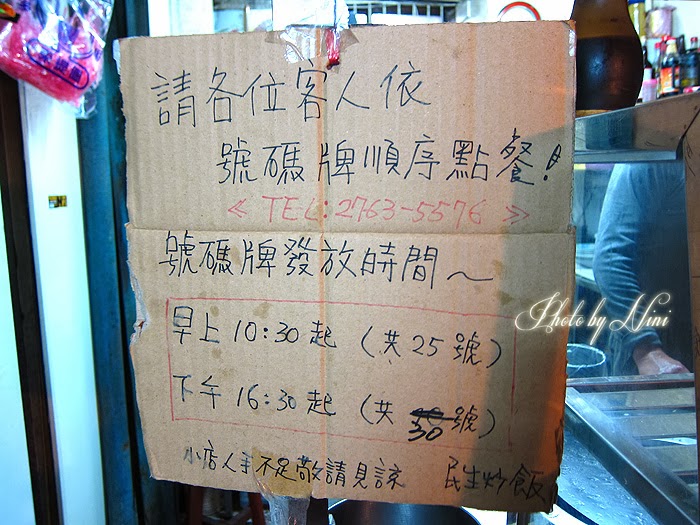 請各位客人依
號碼牌順序點餐!
《 TEL:2763-5576 》
號碼牌發放時間~
早上 10:30 起 (共 25 號)
下午 16:30 起 (共 30 號)
小店人手不足敬請見諒 民生炒飯
Photo by Nini